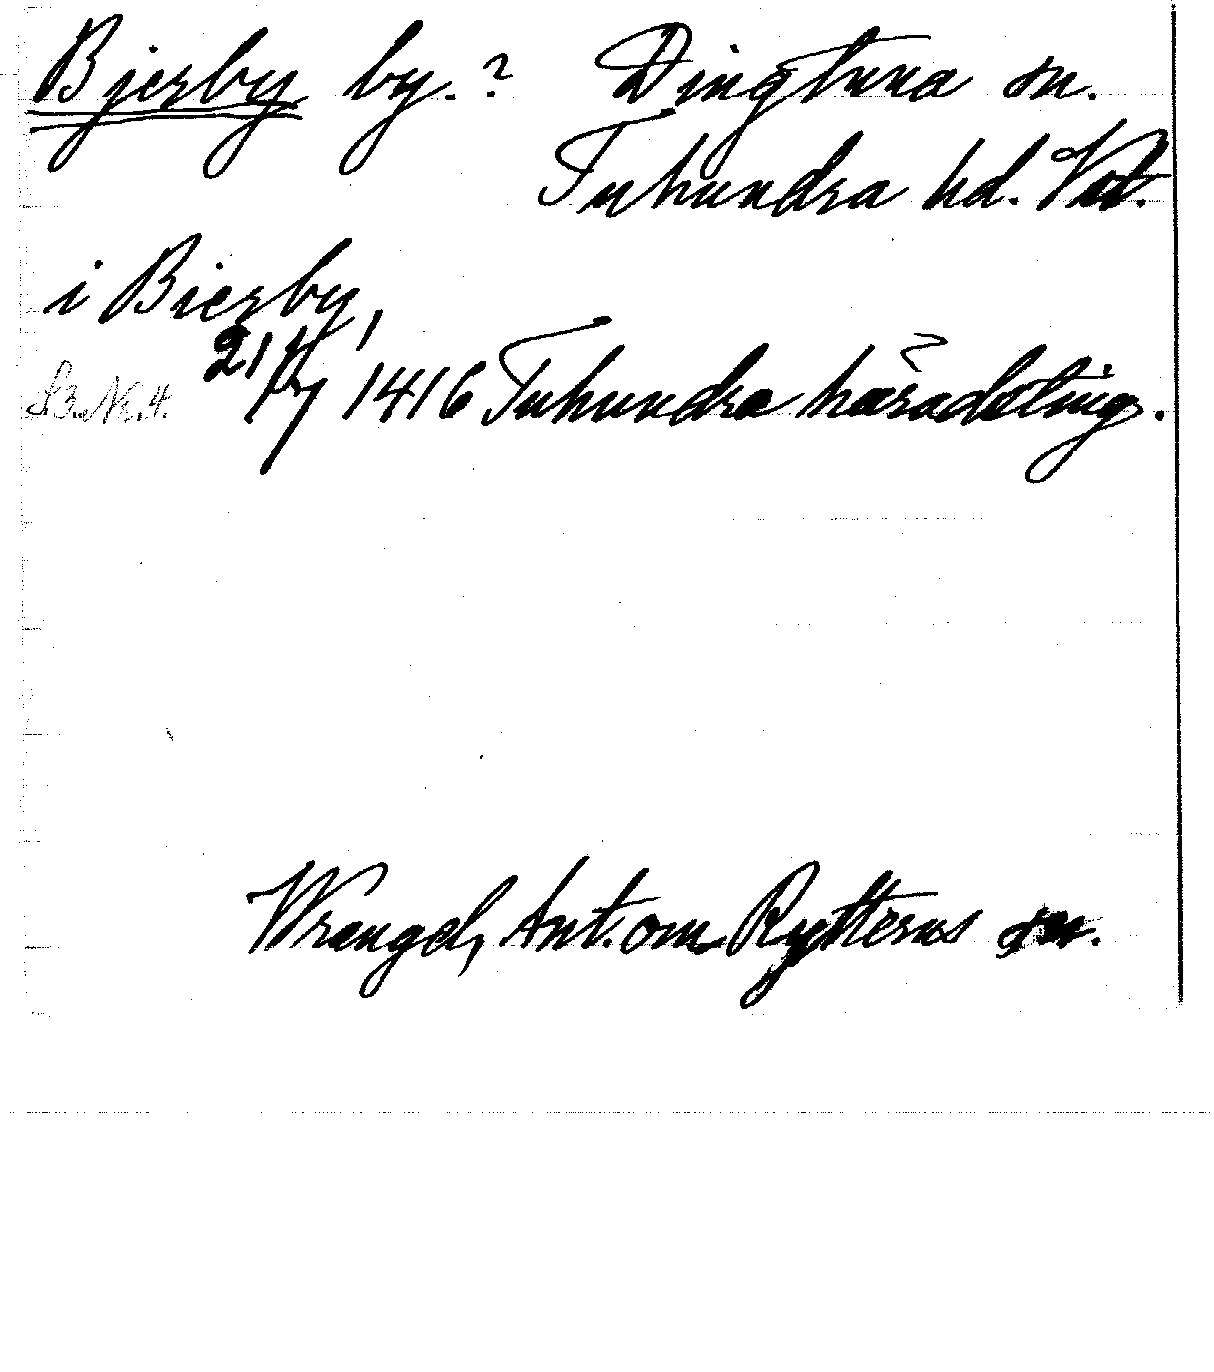 Bjerby by.? Dingtuna sn.
Tuhundra hd. Vstl.
i Bierby,
21/7 1416 Tuhundra häradsting.
Wrangel, Ant. om Rytterns sn.